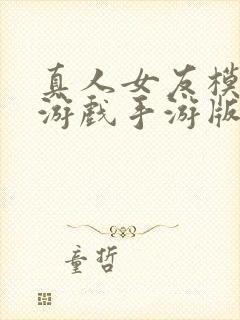 真人女友模
游戏手游版
童哲